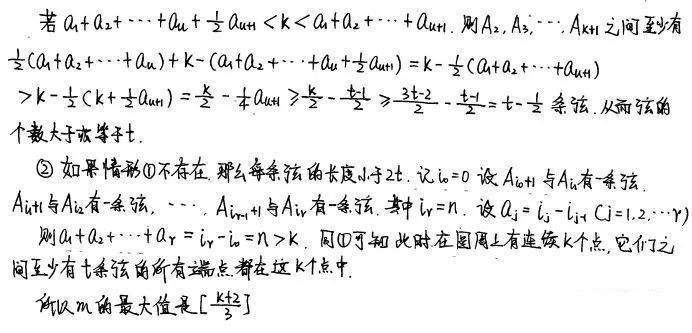 若 a₁+a₂+⋯+aᵤ+½aᵤ₊₁<k<a₁+a₂+⋯+aᵤ₊₁. 则A₂, A₃, ⋯, Aₖ₊₁ 之间至少有
½(a₁+a₂+⋯+aᵤ)+k-(a₁+a₂+⋯+aᵤ+½aᵤ₊₁)=k-½(a₁+a₂+⋯+aᵤ₊₁)
>k-½(k+½aᵤ₊₁)=k/2-¼aᵤ₊₁≥k/2-(t-1)/2≥(3t-2)/2-(t-1)/2=t-½ 条弦. 从而弦的
个数大于或等于t.
② 如果情形①不存在, 那么每条弦的长度小于2t. 记i₀=0 设 A_{i₀+1} 与A_{i₁}有一条弦.
A_{i₁+1}与A_{i₂}有一条弦, ⋯, A_{i_{r-1}+1}与A_{i_r}有一条弦. 其中 i_r=n. 设 a_j=i_j-i_{j-1} (j=1,2,⋯r)
则a₁+a₂+⋯+a_r=i_r-i₀=n>k. 同①可知 此时在圆周上有连续k个点, 它们之
间至少有t条弦的所有端点都在这k个点中.
所以m的最大值是[(k+2)/3]